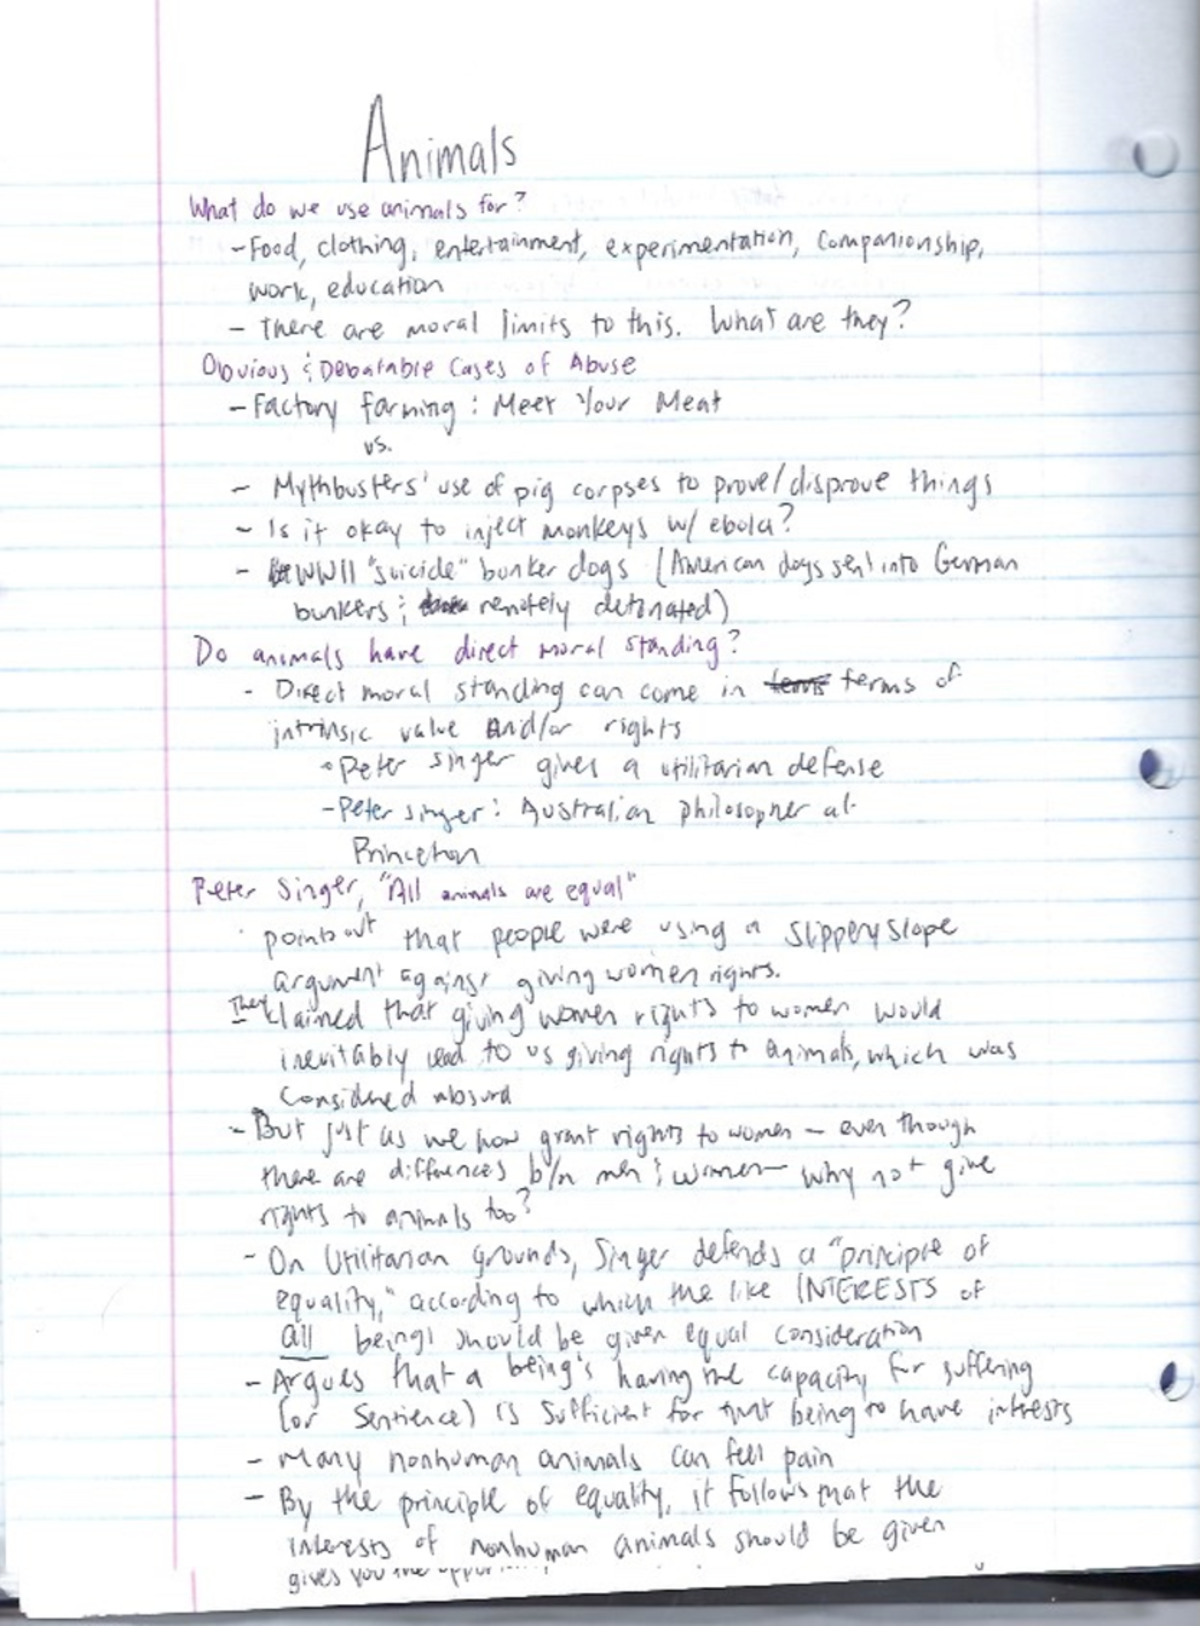 Animals
What do we use animals for?
- Food, clothing, entertainment, experimentation, companionship,
work, education
- There are moral limits to this. What are they?
Obvious & Debatable Cases of Abuse
- Factory farming: Meet Your Meat
vs.
- Mythbusters' use of pig corpses to prove/disprove things
- Is it okay to inject monkeys w/ ebola?
- WWII "suicide" bunker dogs (American dogs sent into German
bunkers & remotely detonated)
Do animals have direct moral standing?
- Direct moral standing can come in terms of
intrinsic value and/or rights
• Peter Singer gives a utilitarian defense
- Peter Singer: Australian philosopher at
Princeton
Peter Singer, "All animals are equal"
points out that people were using a slippery slope
argument against giving women rights.
They claimed that giving women rights to women would
inevitably lead to us giving rights to animals, which was
considered absurd
- But just as we now grant rights to women - even though
there are differences b/n men & women - why not give
rights to animals too?
- On Utilitarian grounds, Singer defends a "principle of
equality," according to which the like INTERESTS of
all beings should be given equal consideration
- Argues that a being's having the capacity for suffering
(or sentience) is sufficient for that being to have interests
- Many nonhuman animals can feel pain
- By the principle of equality, it follows that the
interests of nonhuman animals should be given
gives you the